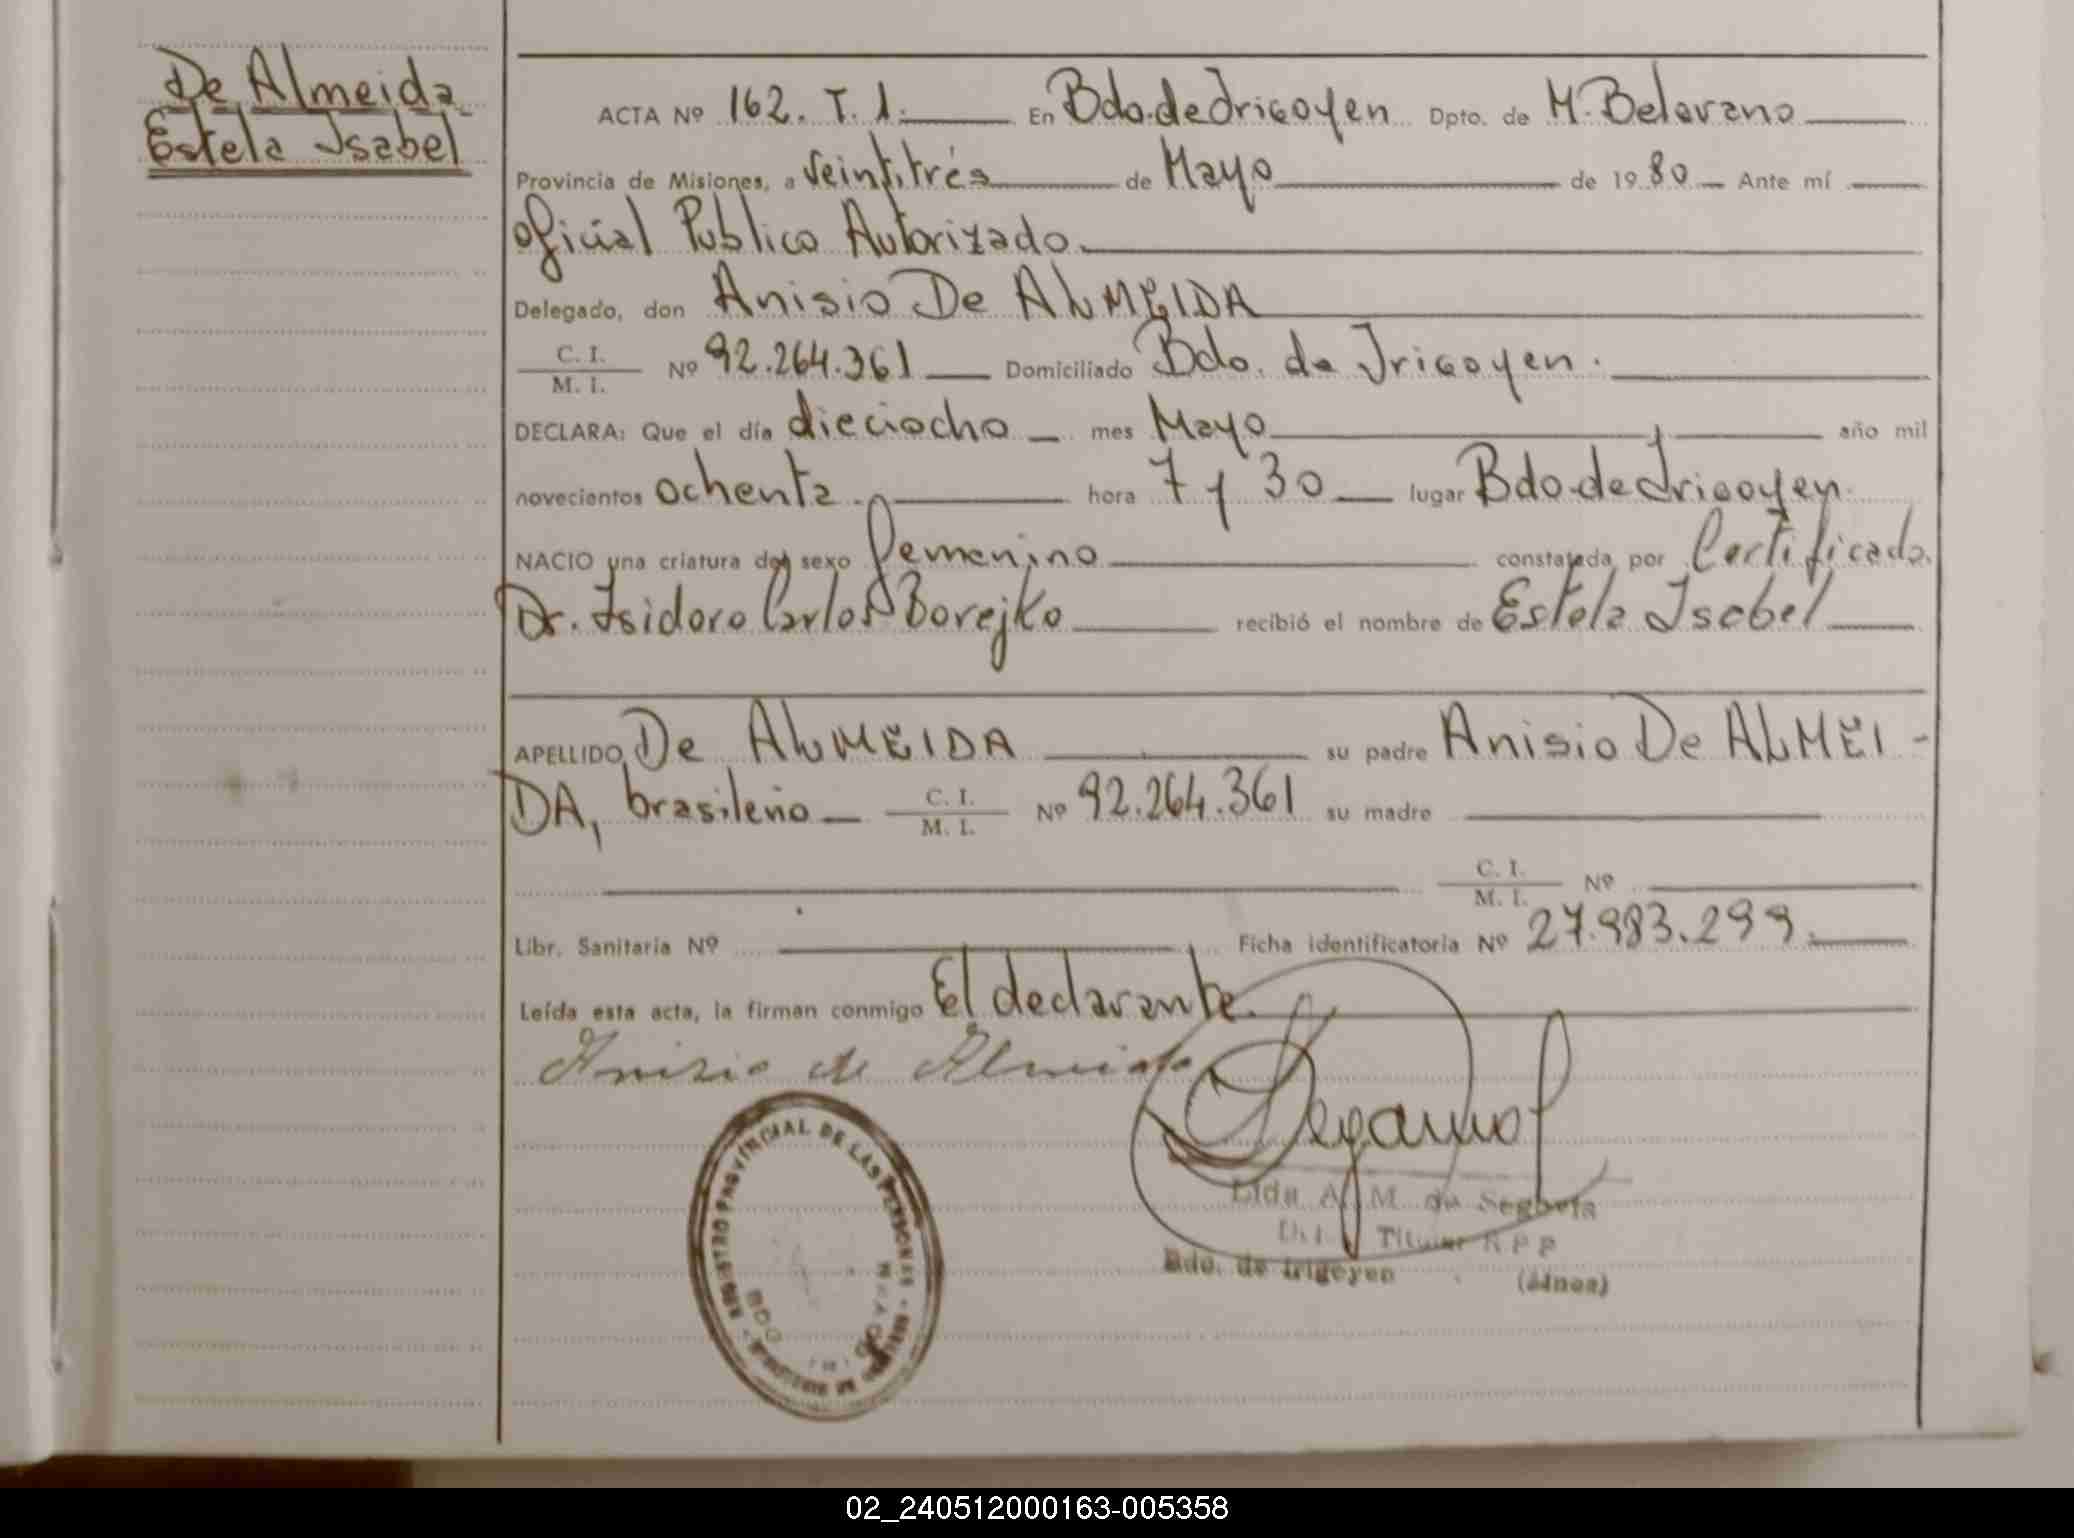 De Almeida
Estela Isabel
ACTA Nº 162. T. 1. En Bdo. de Irigoyen Dpto. de M. Belgrano
Provincia de Misiones, a veintitrés de Mayo de 1980 Ante mí
Oficial Publico Autorizado
Delegado, don Anisio De ALMEIDA
C. I. / M. I. Nº 92.264.361 Domiciliado Bdo. de Irigoyen.
DECLARA: Que el día dieciocho mes Mayo año mil
novecientos ochenta. hora 7 y 30 lugar Bdo. de Irigoyen.
NACIO una criatura del sexo femenino constatada por Certificado.
Dr. Isidoro Carlos Borejko recibió el nombre de Estela Isabel
APELLIDO De ALMEIDA su padre Anisio De ALMEI-
DA, brasileño C. I. / M. I. Nº 92.264.361 su madre
C. I. / M. I. Nº
Libr. Sanitaria Nº Ficha identificatoria Nº 27.983.299.
Leída esta acta, la firman conmigo El declarante.
Anisio de Almeida
REGISTRO PROVINCIAL DE LAS PERSONAS
BDO
Lida A. M. de Segovia
Titular R P P
Bdo. de Irigoyen (Mnes)
02_240512000163-005358